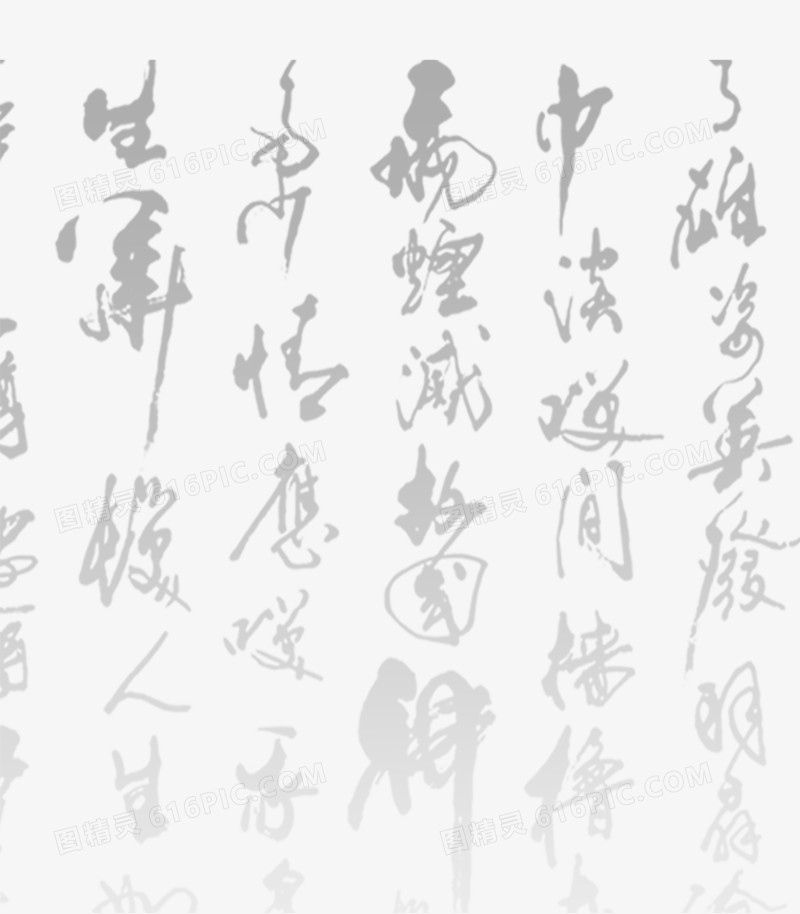 了雄姿英發羽扇綸
巾談笑間檣櫓灰
飛煙滅故國神
多情應笑我早
生華髮人生如
图精灵 616PIC.COM
图精灵 616PIC.COM
图精灵 616PIC.COM
图精灵 616PIC.COM
图精灵 616PIC.COM
图精灵 616PIC.COM